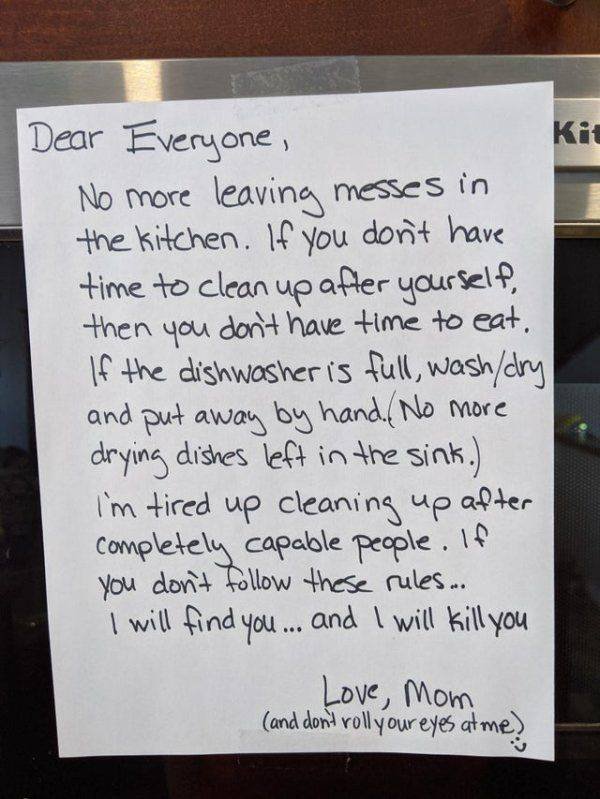 Dear Everyone,
No more leaving messes in
the kitchen. If you don't have
time to clean up after yourself,
then you don't have time to eat.
If the dishwasher is full, wash/dry
and put away by hand. (No more
drying dishes left in the sink.)
I'm tired up cleaning up after
completely capable people. If
you don't follow these rules...
I will find you... and I will kill you
Love, Mom
(and don't roll your eyes at me)
Kit